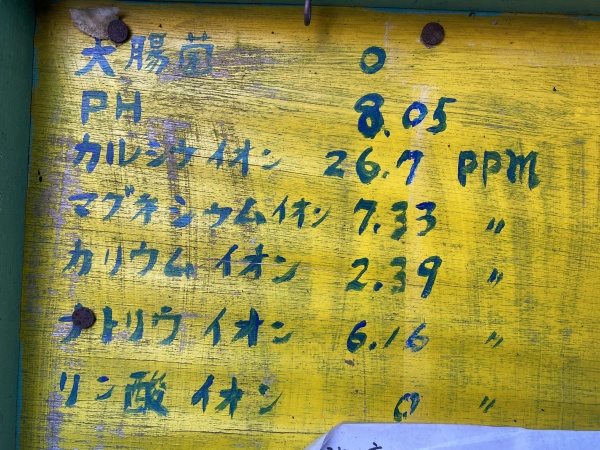 大腸菌 0
PH 8.05
カルシウイオン 26.7 PPM
マグネシウムイオン 7.33 〃
カリウム イオン 2.39 〃
ナトリウ イオン 6.16 〃
リン酸 イオン 0 〃